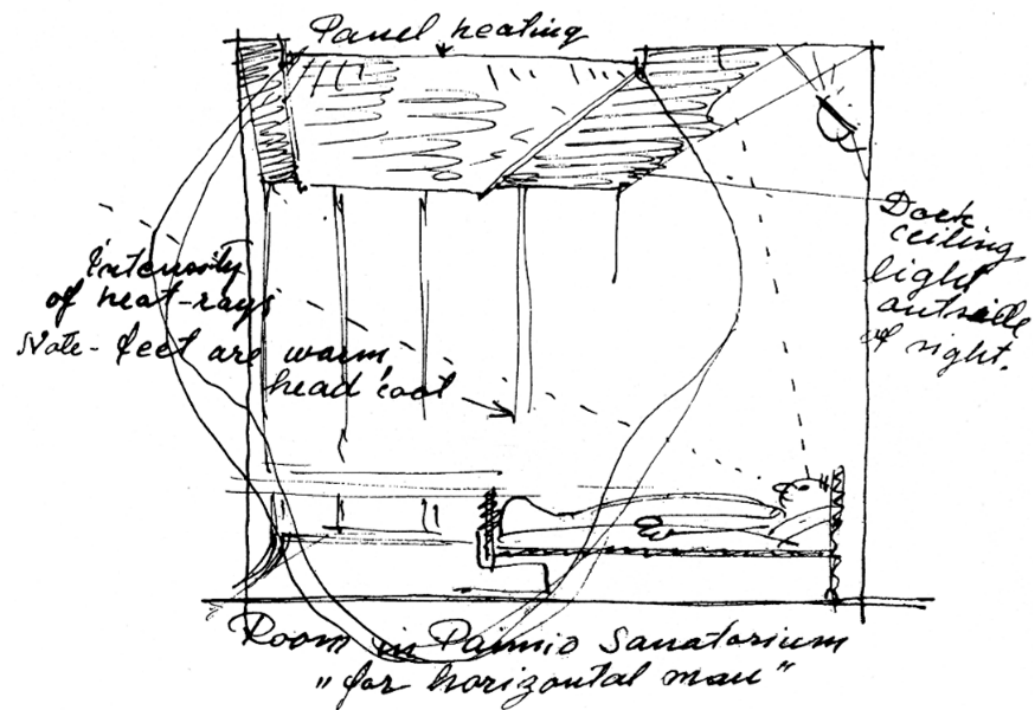 Panel heating
Intensity
of heat-rays
Note - feet are warm
head cool
Dark
ceiling
light
outside
of sight.
Room in Paimio Sanatorium
"for horizontal man"